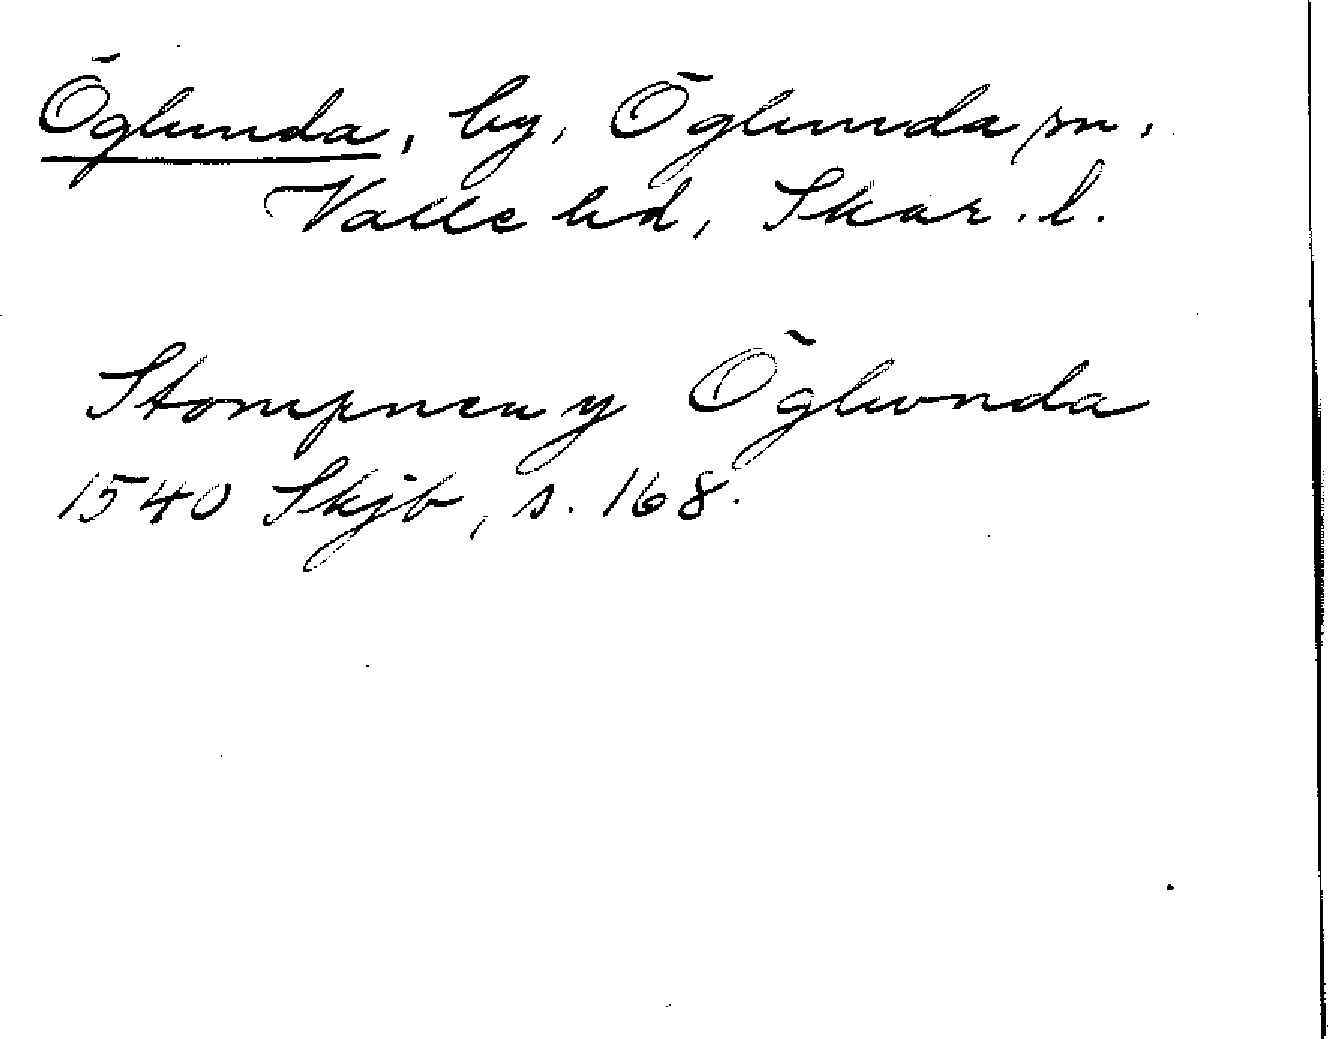 Öglunda, by, Öglunda sn,
Valle hd, Skar. l.
Stompnen y Öglunda
1540 Skjb, s. 168.